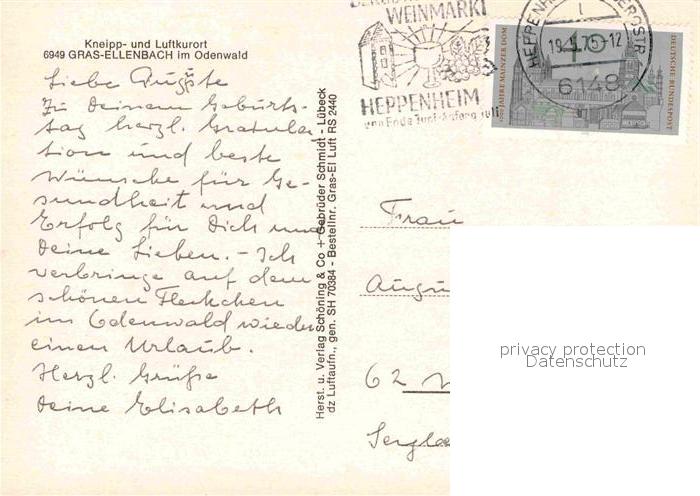 Kneipp- und Luftkurort
6949 GRAS-ELLENBACH im Odenwald
Liebe Auguste
Zu Deinem Geburts-
tag herzl. Gratula
tion und beste
Wünsche für Ge-
sundheit und
Erfolg für Dich und
Deine Lieben. - Ich
verbringe auf dem
schönen Fleckchen
im Odenwald wieder
einen Urlaub.
Herzl. Grüße
Deine Elisabeth
Herst. u. Verlag Schöning & Co + Gebrüder Schmidt - Lübeck
dz Luftaufn., gen. SH 70384 - Bestellnr. Gras-El Luft RS 2440
WEINMARKT
HEPPENHEIM
von Ende Juni-Anfang Juli
HEPPENHEIM
75-12
6148
1000 JAHRE MAINZER DOM
DEUTSCHE BUNDESPOST
Frau
Augu
62
privacy protection
Datenschutz